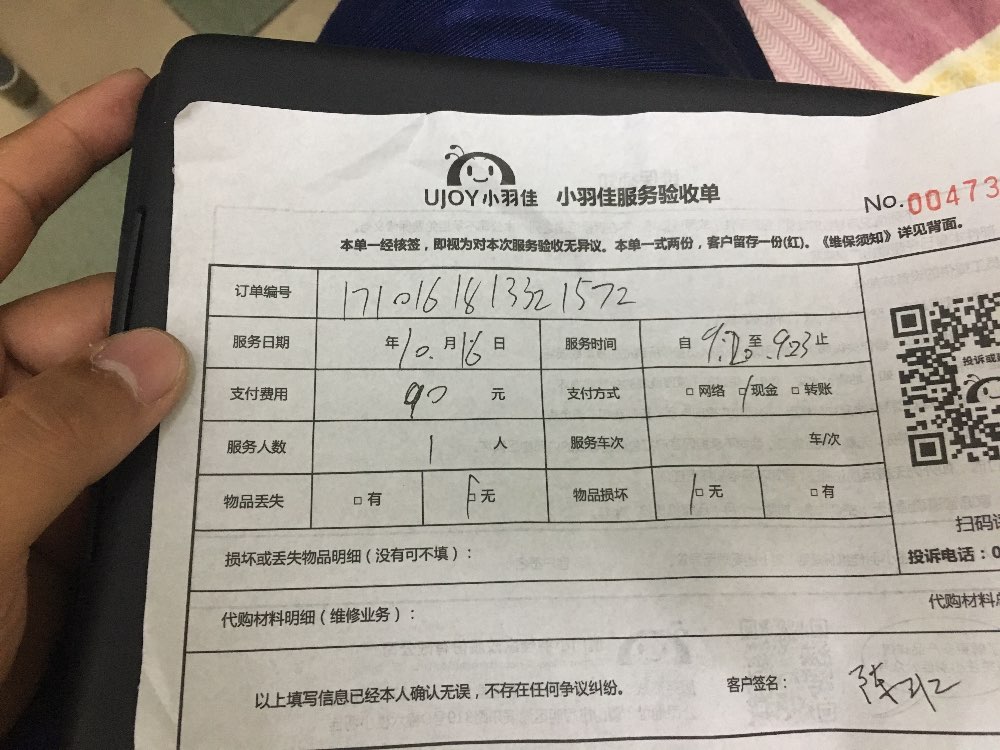 UJOY小羽佳 小羽佳服务验收单
No.00473
本单一经核签，即视为对本次服务验收无异议。本单一式两份，客户留存一份(红)。《维保须知》详见背面。
订单编号 1710161813321572
服务日期 年10.月16日 服务时间 自9:20至.923止
支付费用 90元 支付方式 □网络 □现金 □转账
服务人数 1人 服务车次 车/次
物品丢失 □有 □无 物品损坏 □无 □有
投诉或
扫码
损坏或丢失物品明细（没有可不填）：
投诉电话：0
代购材料明细（维修业务）：
代购材料
以上填写信息已经本人确认无误，不存在任何争议纠纷。 客户签名：